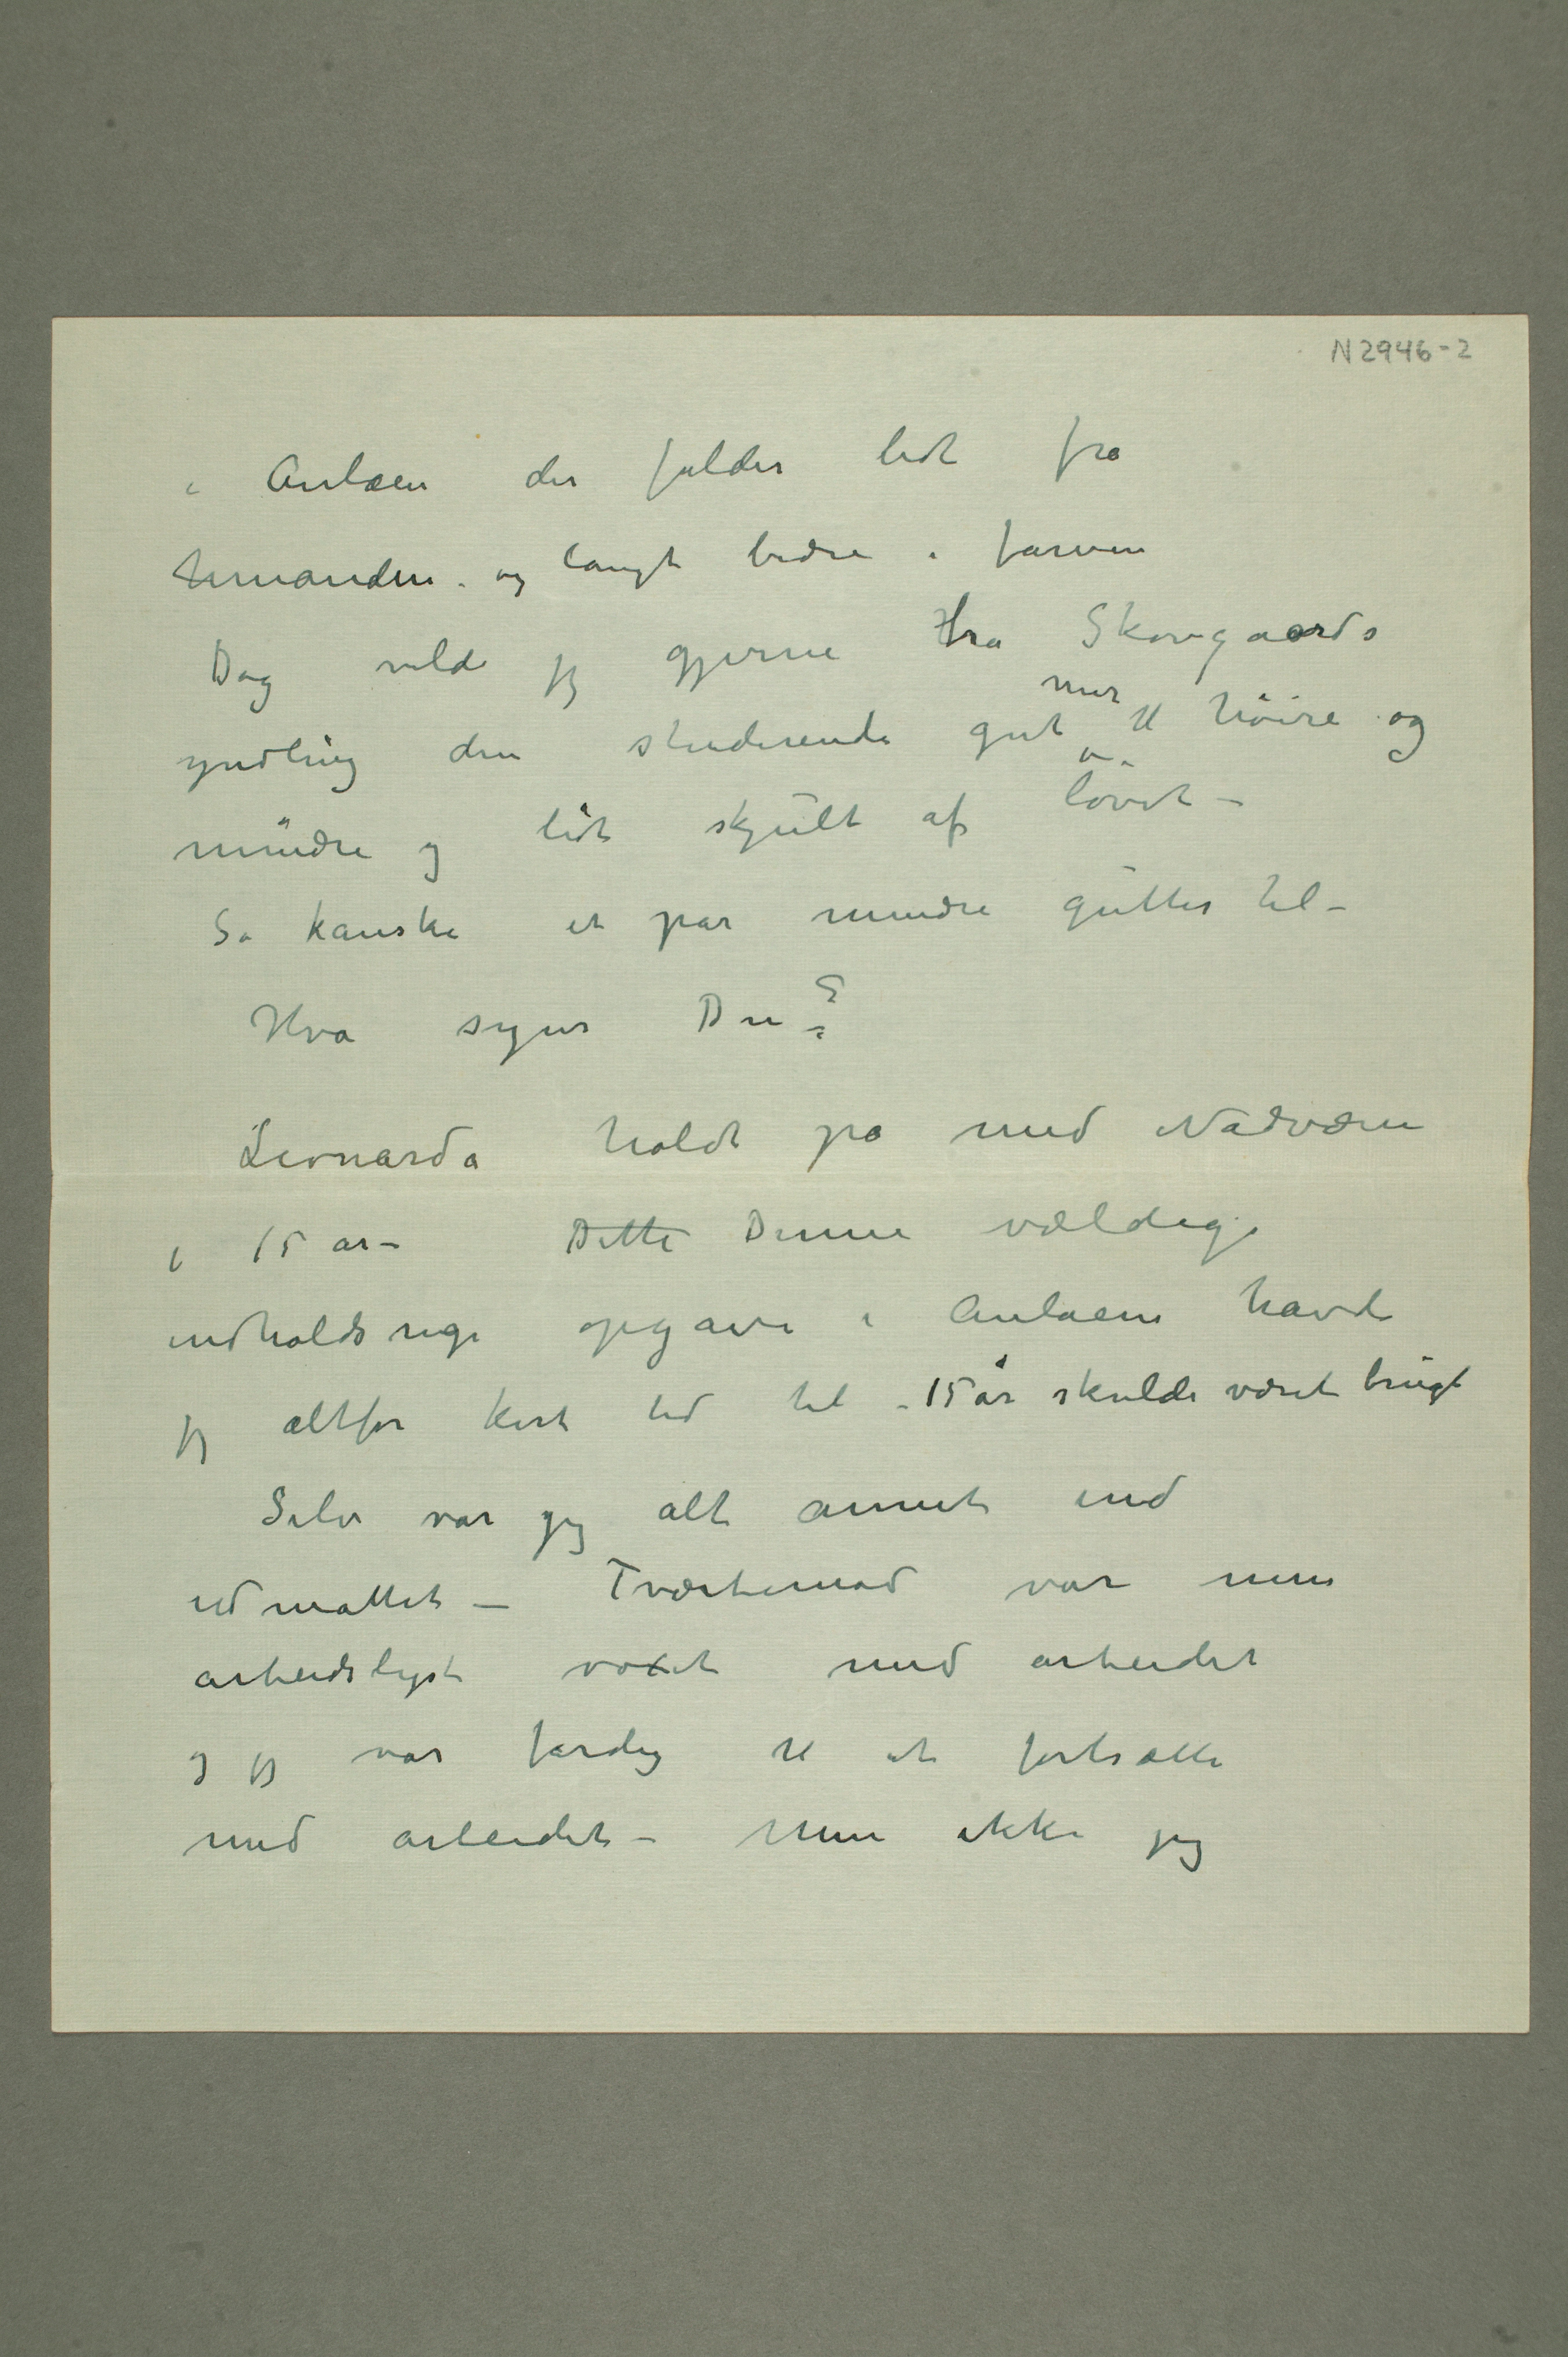 N 2946-2
i Aulaen der falder lidt fra
hinanden. og langt bedre i farven
Dog vilde jeg gjerne ha Skovgaards
yndling den studerende gut mer til höire og
mindre og lidt skjult af lövet –
Så kanske et par mindre gutter til –
Hva synes Du?
Leonarda holdt på med Nadværen
i 15 år – Dette Denne vældige
indholdsrige opgave i Aulaen havde
jeg altfor kort tid til – 15 år skulde været brugt
Selv var jeg alt annet end
udmattet – Tværtemod var min
arbeidslyst voxet med arbeidet
og jeg var færdig til at fortsætte
med arbeidet – Men ikke jeg